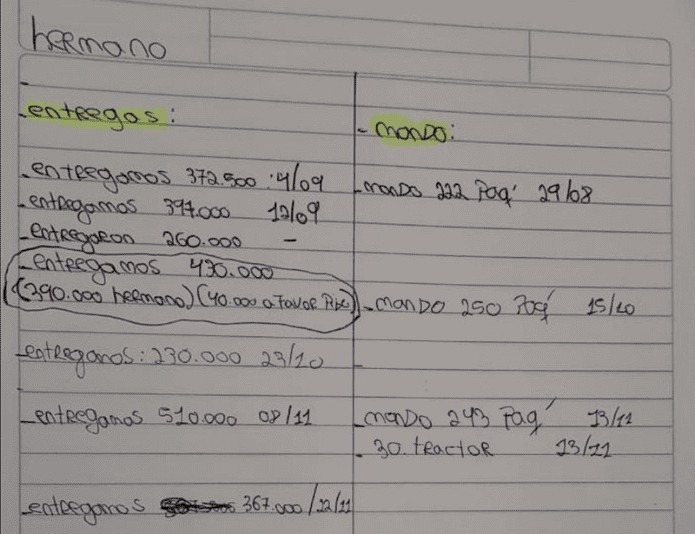 hermano
- entregas:
- entregamos 372.500 : 4/09
- entregamos 394.000 12/09
- entregaron 260.000 -
- entregamos 430.000
(390.000 hermano) (40.000 a favor
- entregamos: 230.000 23/10
- entregamos 510.000 08/11
- entregamos 367.000 / 22/11
- mando:
- mando 222 Paq' 29/08
- mando 250 Paq' 15/10
- mando 243 Paq' 13/11
- 30. tractor 13/11